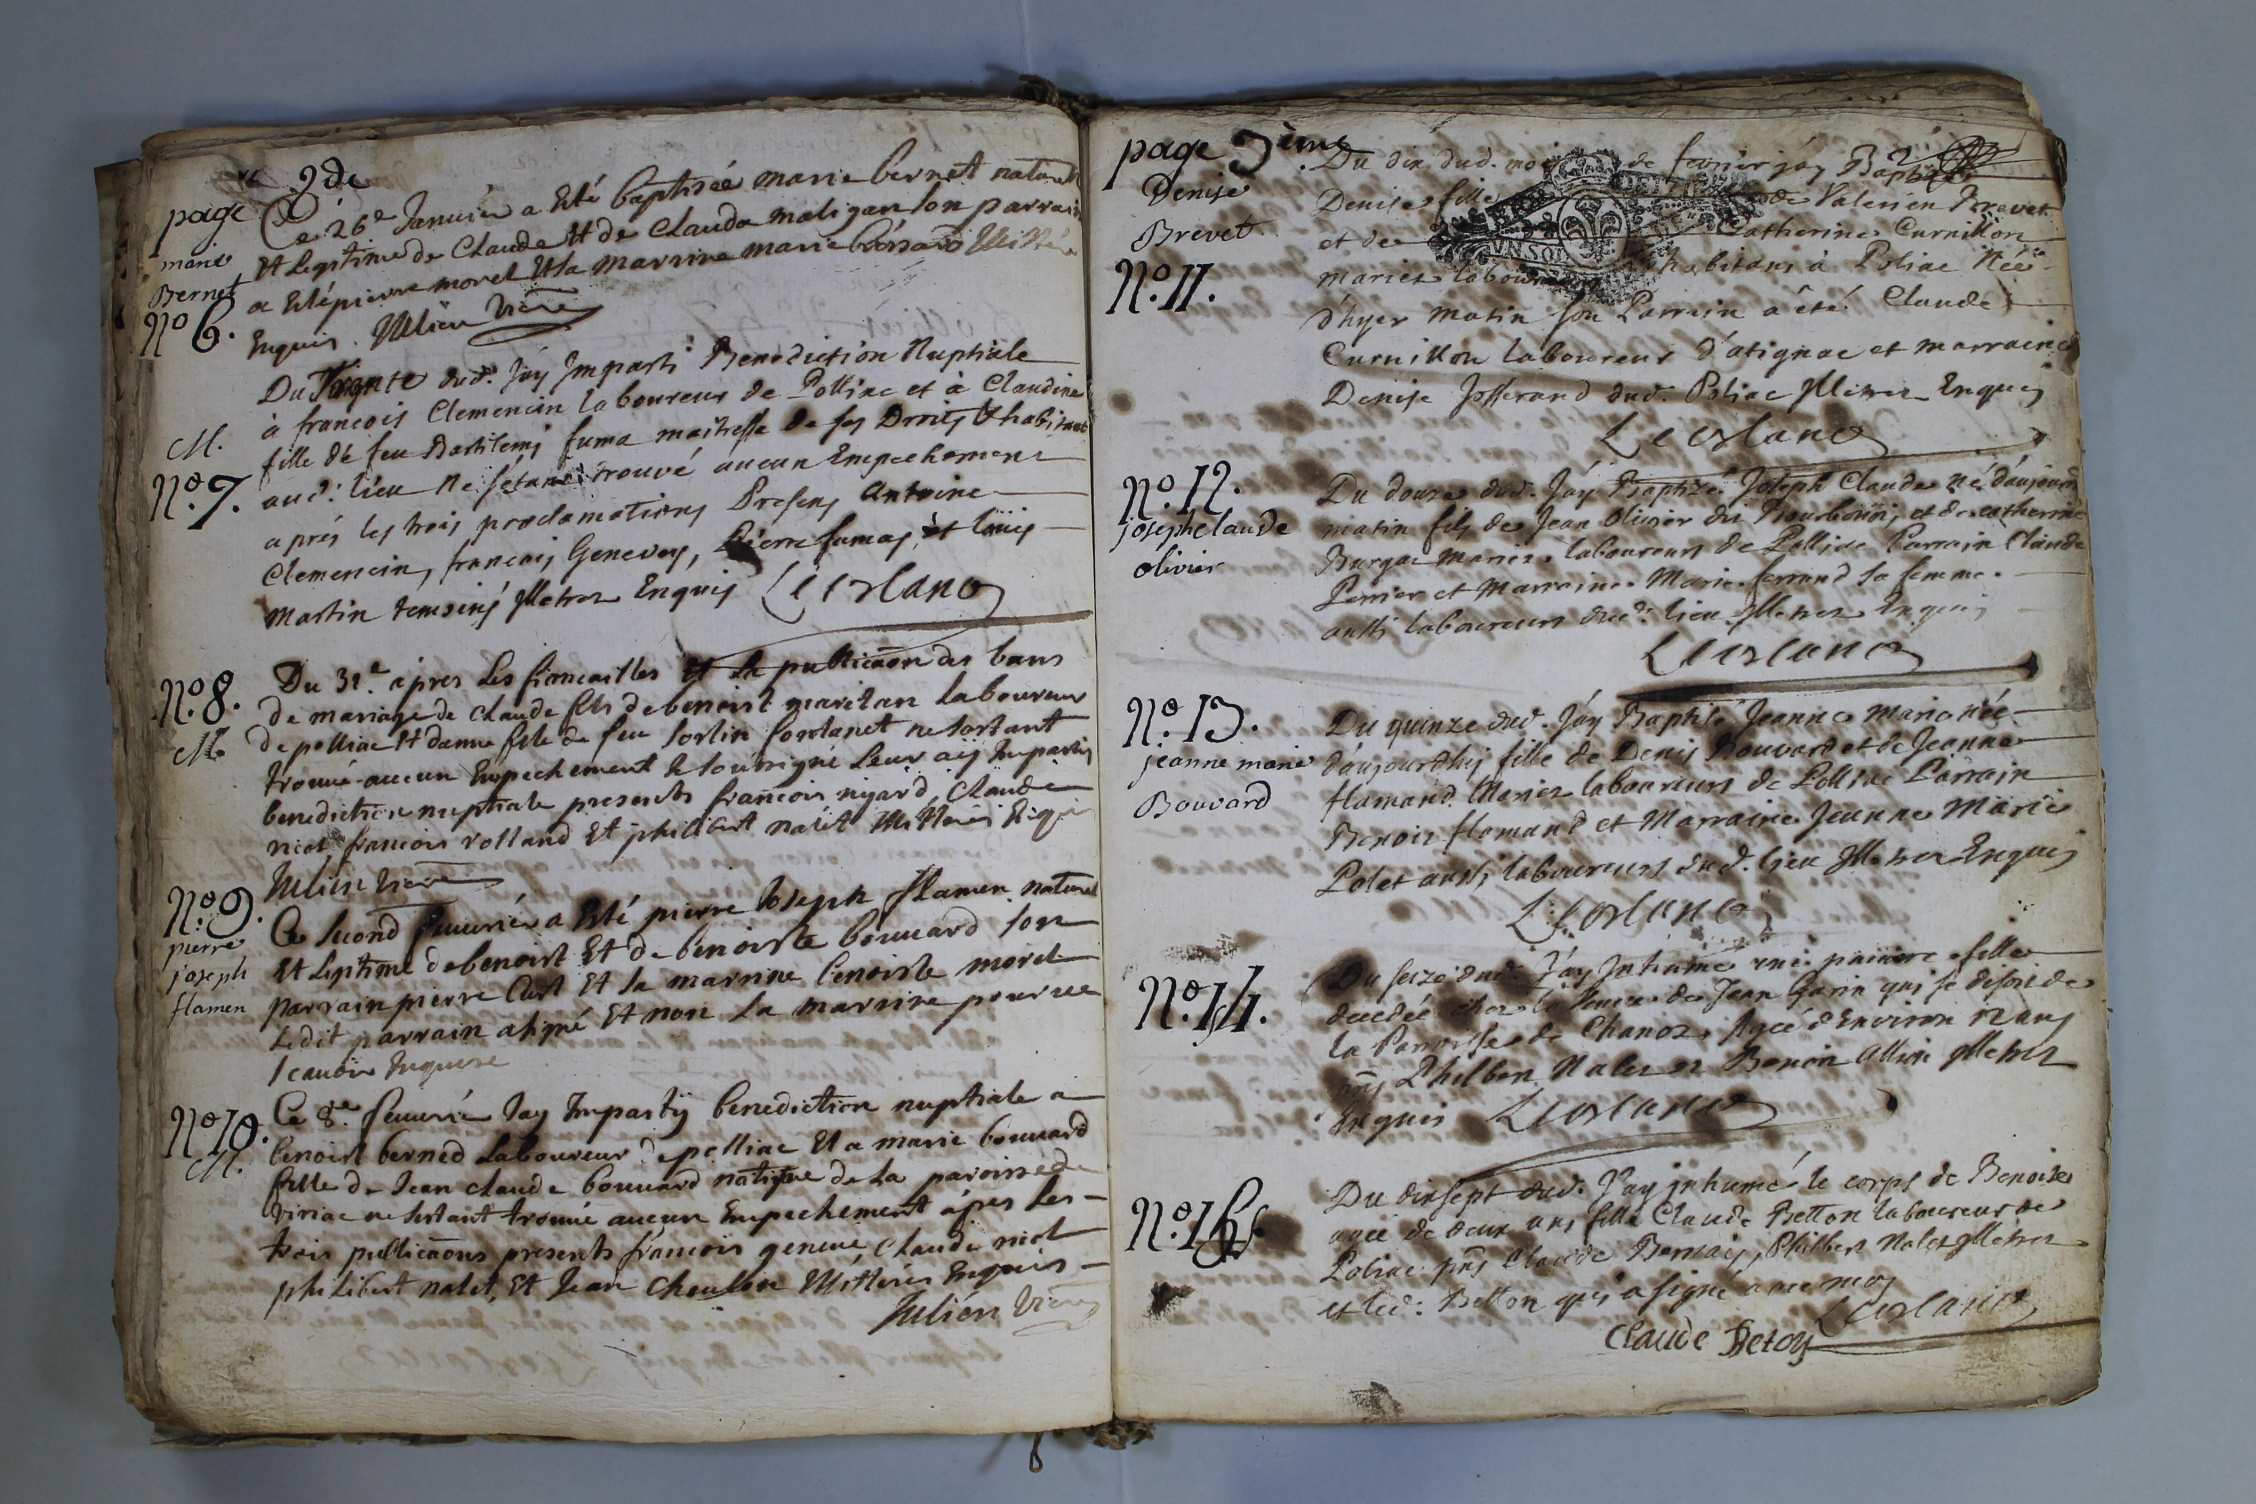 page 2de
marie
Bernet
No 6.
Ce 26e Januier a Esté baptisée marie bernet naturelle
Et Legitime de Claude Et de Clauda maligan son parrain
a Esté pierre morel Et la marrine marie
Enquis. Julien
M.
No. 7.
Du Trente dud. j'ay Imparti Benediction Nuptiale
à francois Clemencin laboureur de Polliac et à Claudine
fille de feu Bartilemi fuma maitresse de ses Droits & habitant
aud. lieu ne s'étant trouvé aucun Empechement
aprés les trois proclamations Presens Antoine
Clemencin, francois Genevey, Pierre fumas, et loüis
Martin temoins Illetrez Enquis
No. 8.
M.
Du 31e apres Les fiancailles Et la publicaõn des bans
de mariage de claude fils de benoist maritan laboureur
de polliac Et danne fille de feu sorlin fontanet ne sestant
trouué aucun Empechement le soussigné Leur aij Impartij
benediction nuptiale presents francois nijard, Claude
niot francois rolland Et philibert nalet Illitterés Enquis
Julien
No. 9.
pierre
joseph
flamen
Ce second feuurier a Esté pierre Joseph flamen naturel
Et Legitime de benoist Et de benoiste bouuard son
parrain pierre Curt Et la marrine benoiste morel
Ledit parrain a signé Et non la marrine pour ne
scauoir Enquise
No 10.
M.
Ce 8e feuurier Jay Impartij benediction nuptiale a
benoist berned Laboureur de polliac Et a marie bouuard
fille de Jean claude bouuard natifue de La paroisse de
viriac ne sestant trouué aucun Empechement apres les
trois publicaõns presents francois geneue, Claude niot
philibert nalet, Et Jean choulon Illitterés Enquis
Julien
page 3ème
Denise
Brevet
No. 11.
Du dix dud. mois de fevrier j'ay Baptisé
Denise fille de Valerien Brevet
et de Catherine Curnillon
mariez laboureurs habitans à Poliac Née
d'hyer matin son Parrain a été Claude
Curnillon laboureur d'atignac et marraine
Denise Josserand dud. Poliac Illetrez Enquis
No. 12.
joseph claude
olivier
Du douze dud. j'ay Baptizé Joseph Claude né d'aujourd
matin fils de Jean Olivier dit Bourbonois et de catherine
Burgat mariez laboureurs de Polliac Parrain Claude
Perrier et Marraine Marie ferrand sa femme
aussi laboureurs dud. lieu Illetrez Enquis
No. 13.
jeanne marie
Bouvard
Du quinze dud. j'ay Baptisé Jeanne Marie née
d'aujourdhuy fille de Denis Bouvard et de Jeanne
flamand Mariez laboureurs de Polliac Parrain
Benoit flamand et Marraine Jeanne Marie
Polet aussi laboureurs dud. lieu Illetrez Enquis
No. 14.
Du seize dud. J'ay Inhumé une pauvre fille
decedée chez la veuve de Jean Garin qui se disoit de
la Parroisse de Chanoz, Agée d'Environ 12 ans
pns Philbert Nalet et Benoit Illetrez
Enquis
No. 15.
Du dix sept dud. J'ay inhumé le corps de Benoite
agée de deux ans fille Claude Betton laboureur de
Poliac pns Claude Bernais, Philbert Nalet Illetrez
et led. Betton qui a signé avec moy
Claude Betoy